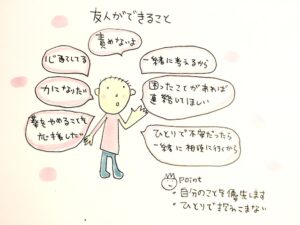 友人ができること
責めないよ
心配してる
力になりたい
薬をやめることを
応援したい
一緒に考えるから
困ったことがあれば
連絡してほしい
ひとりで不安だったら
一緒に相談に行くから
point
・自分のことを優先します
・ひとりで抱えこまない